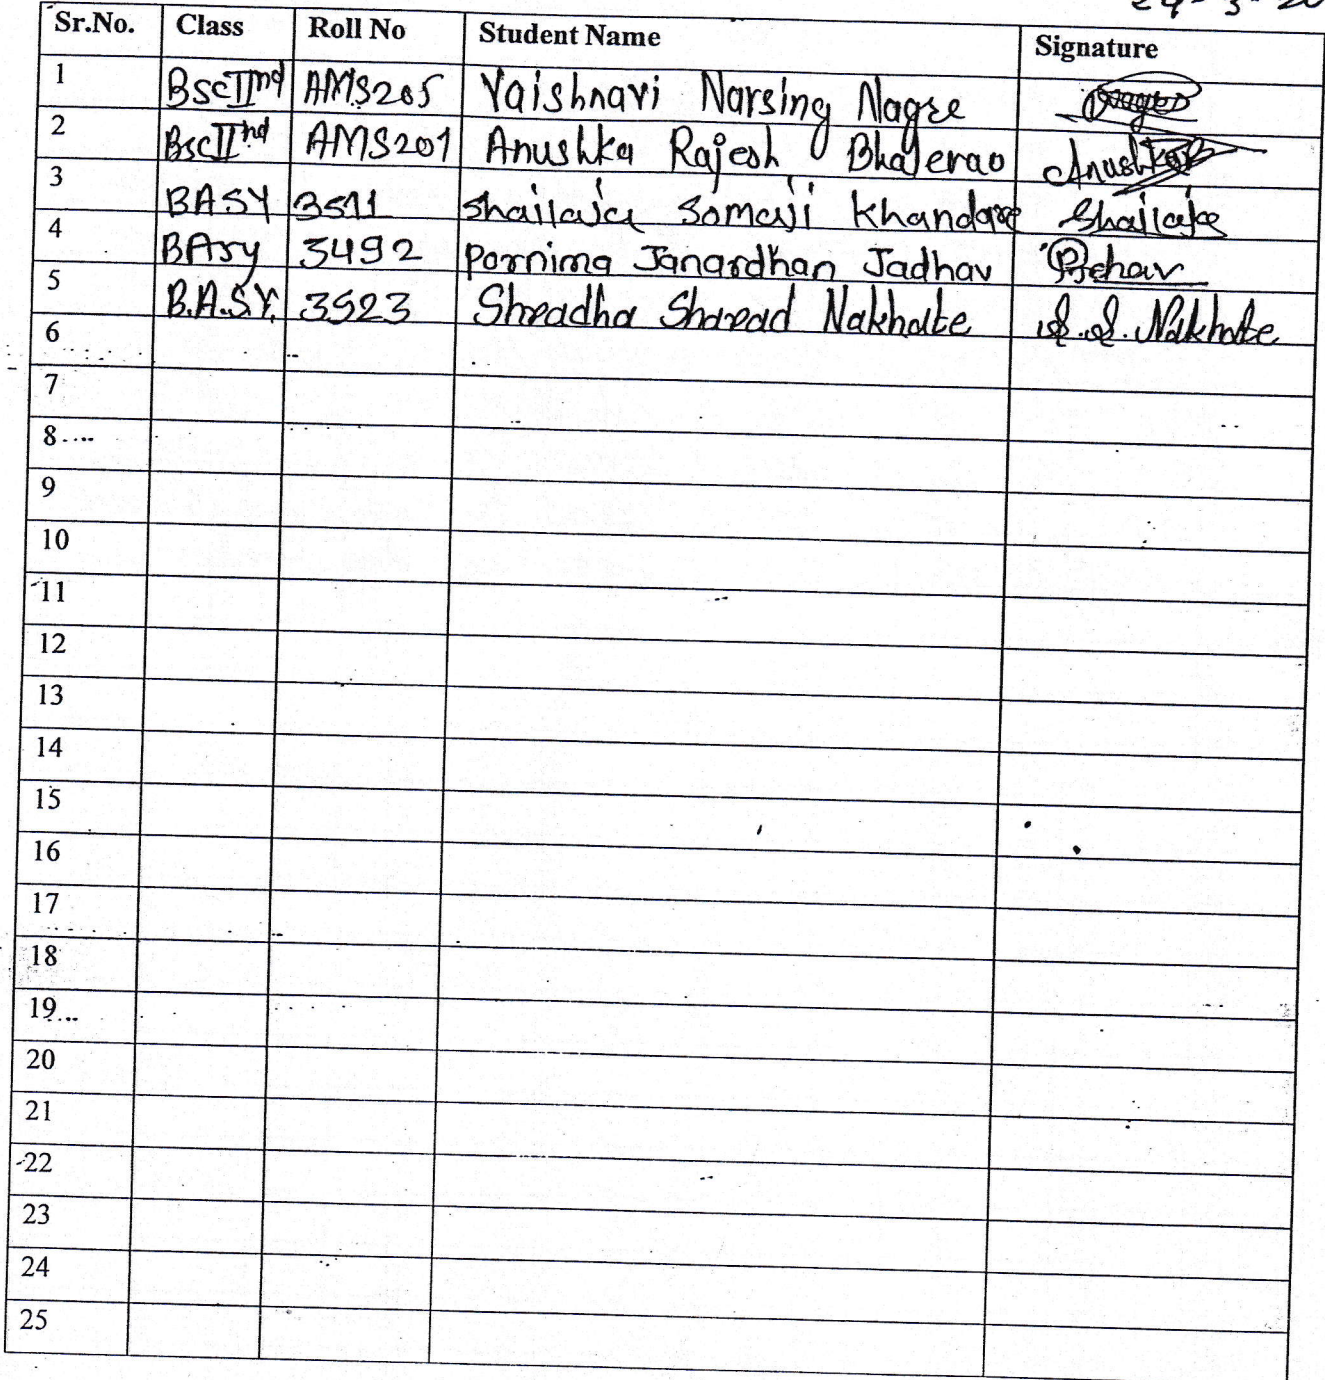 24-3-20
Sr.No. Class Roll No Student Name Signature
1 BscIInd AMS205 Vaishnavi Narsing Nagre
2 BscIInd AMS201 Anushka Rajesh Bhalerao Anushka
3 BASY 3511 Shailaja Somaji Khandare Shailaja
4 BASY 3492 Pornima Janardhan Jadhav
5 B.A.S.Y. 3523 Shradha Sharad Nakhate S.S. Nakhate
6
7
8
9
10
11
12
13
14
15
16
17
18
19
20
21
22
23
24
25